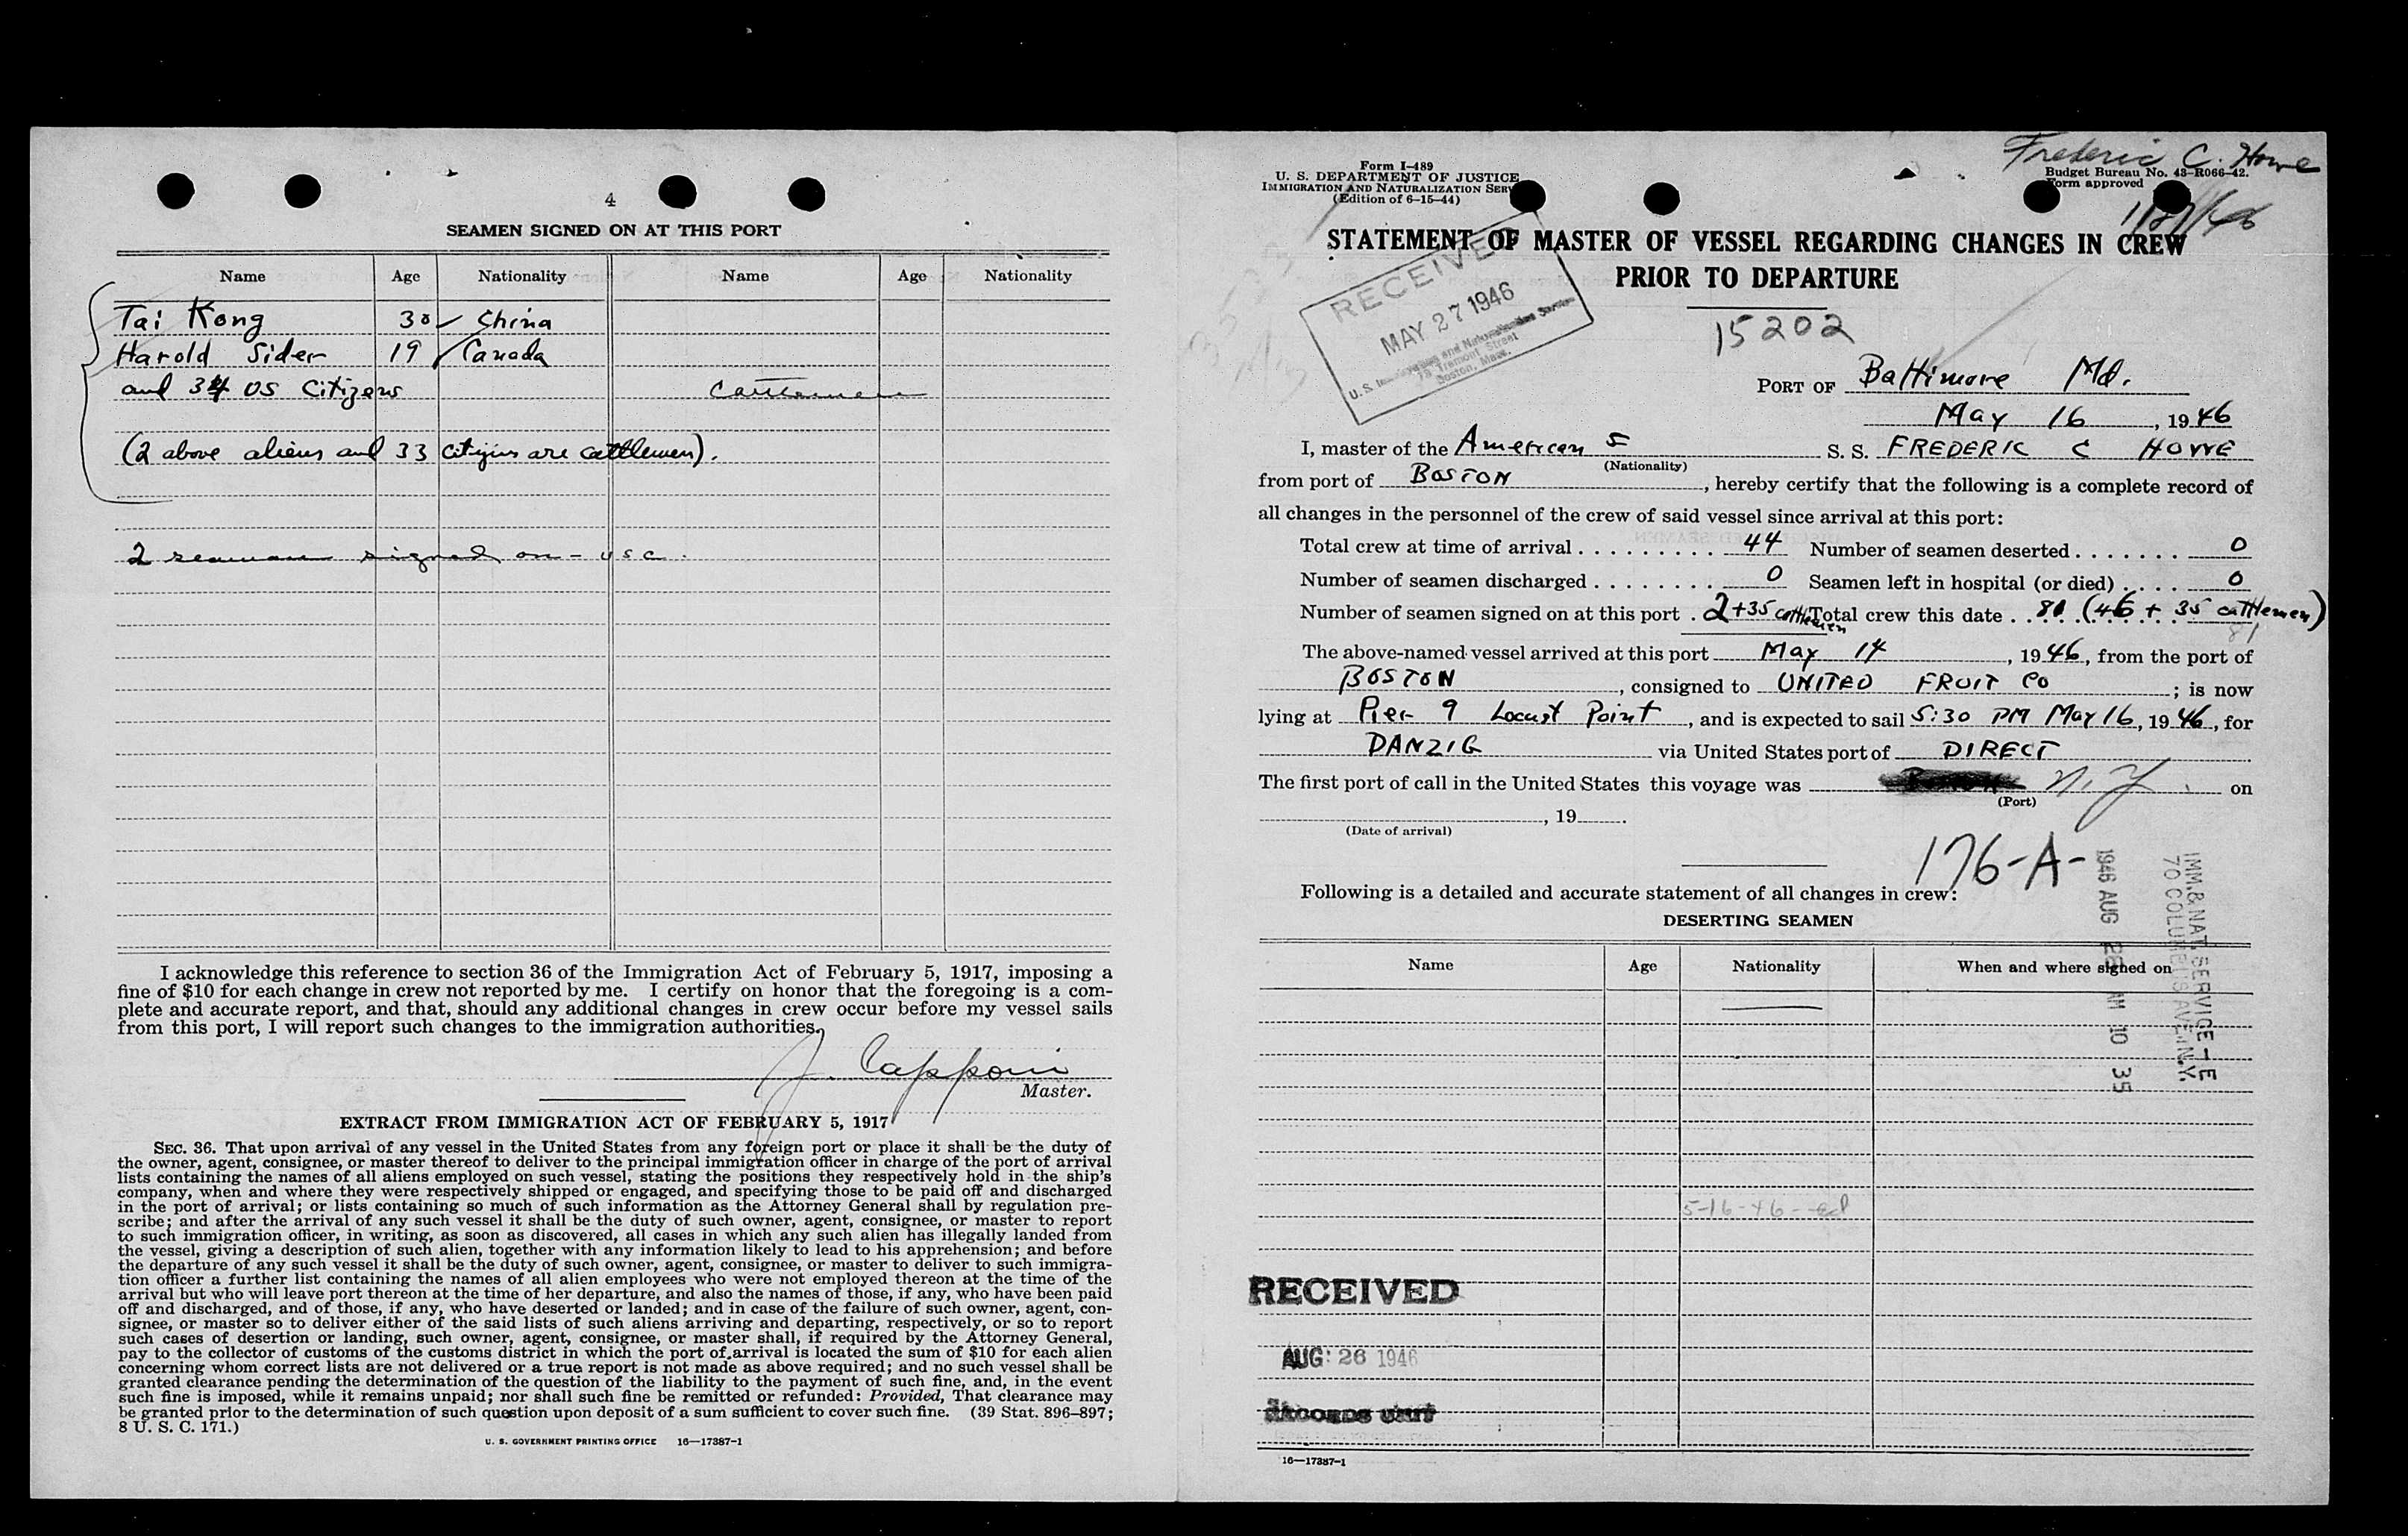 4
SEAMEN SIGNED ON AT THIS PORT
Name Age Nationality Name Age Nationality
Tai Kong 30 China
Harold Sider 19 Canada
and 34 US Citizens cattlemen
(2 above aliens and 33 citizens are cattlemen).
2 seamen signed on - usc.
I acknowledge this reference to section 36 of the Immigration Act of February 5, 1917, imposing a
fine of $10 for each change in crew not reported by me. I certify on honor that the foregoing is a com-
plete and accurate report, and that, should any additional changes in crew occur before my vessel sails
from this port, I will report such changes to the immigration authorities.
J. Capponi
Master.
EXTRACT FROM IMMIGRATION ACT OF FEBRUARY 5, 1917
SEC. 36. That upon arrival of any vessel in the United States from any foreign port or place it shall be the duty of
the owner, agent, consignee, or master thereof to deliver to the principal immigration officer in charge of the port of arrival
lists containing the names of all aliens employed on such vessel, stating the positions they respectively hold in the ship's
company, when and where they were respectively shipped or engaged, and specifying those to be paid off and discharged
in the port of arrival; or lists containing so much of such information as the Attorney General shall by regulation pre-
scribe; and after the arrival of any such vessel it shall be the duty of such owner, agent, consignee, or master to report
to such immigration officer, in writing, as soon as discovered, all cases in which any such alien has illegally landed from
the vessel, giving a description of such alien, together with any information likely to lead to his apprehension; and before
the departure of any such vessel it shall be the duty of such owner, agent, consignee, or master to deliver to such immigra-
tion officer a further list containing the names of all alien employees who were not employed thereon at the time of the
arrival but who will leave port thereon at the time of her departure, and also the names of those, if any, who have been paid
off and discharged, and of those, if any, who have deserted or landed; and in case of the failure of such owner, agent, con-
signee, or master so to deliver either of the said lists of such aliens arriving and departing, respectively, or so to report
such cases of desertion or landing, such owner, agent, consignee, or master shall, if required by the Attorney General,
pay to the collector of customs of the customs district in which the port of arrival is located the sum of $10 for each alien
concerning whom correct lists are not delivered or a true report is not made as above required; and no such vessel shall be
granted clearance pending the determination of the question of the liability to the payment of such fine, and, in the event
such fine is imposed, while it remains unpaid; nor shall such fine be remitted or refunded: Provided, That clearance may
be granted prior to the determination of such question upon deposit of a sum sufficient to cover such fine. (39 Stat. 896–897;
8 U. S. C. 171.)
U. S. GOVERNMENT PRINTING OFFICE 16—17387-1
Frederic C. Howe
Form I-489
U. S. DEPARTMENT OF JUSTICE
IMMIGRATION AND NATURALIZATION SERV
(Edition of 6-15-44)
Budget Bureau No. 43-R066-42.
Form approved
STATEMENT OF MASTER OF VESSEL REGARDING CHANGES IN CREW
PRIOR TO DEPARTURE
RECEIVED
MAY 27 1946
U. S. Immigration and Naturalization Service
Tremont Street
Boston, Mass.
15202
PORT OF Baltimore Md.
May 16, 1946
I, master of the American S. S. FREDERIC C HOWE
(Nationality)
from port of BOSTON, hereby certify that the following is a complete record of
all changes in the personnel of the crew of said vessel since arrival at this port:
Total crew at time of arrival . . . . . . . . . 44 Number of seamen deserted . . . . . . . 0
Number of seamen discharged . . . . . . . . 0 Seamen left in hospital (or died) . . . . 0
Number of seamen signed on at this port . 2+35 cattlemen Total crew this date . . 81 (46 + 35 cattlemen)
81
The above-named vessel arrived at this port May 14, 1946, from the port of
BOSTON, consigned to UNITED FRUIT CO; is now
lying at Pier 9 Locust Point, and is expected to sail 5:30 PM May 16, 1946, for
DANZIG via United States port of DIRECT
The first port of call in the United States this voyage was N.Y. on
(Port)
, 19
(Date of arrival)
176-A-
Following is a detailed and accurate statement of all changes in crew:
DESERTING SEAMEN
Name Age Nationality When and where signed on
IMM.& NAT. SERVICE - E
70 COLUMBUS AVE. N.Y.
1946 AUG 26 AM 10 35
5-16-46
RECEIVED
AUG 26 1946
RECORDS UNIT
16—17387-1